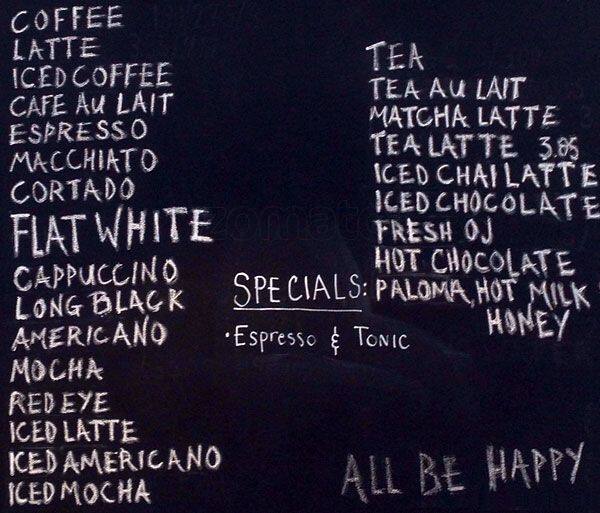 COFFEE
LATTE
ICED COFFEE
CAFE AU LAIT
ESPRESSO
MACCHIATO
CORTADO
FLAT WHITE
CAPPUCCINO
LONG BLACK
AMERICANO
MOCHA
RED EYE
ICED LATTE
ICED AMERICANO
ICED MOCHA
SPECIALS:
·Espresso & TONIC
TEA
TEA AU LAIT
MATCHA LATTE
TEA LATTE 3.85
ICED CHAI LATTE
ICED CHOCOLATE
FRESH OJ
HOT CHOCOLATE
PALOMA, HOT MILK
HONEY
ALL BE HAPPY
zomato